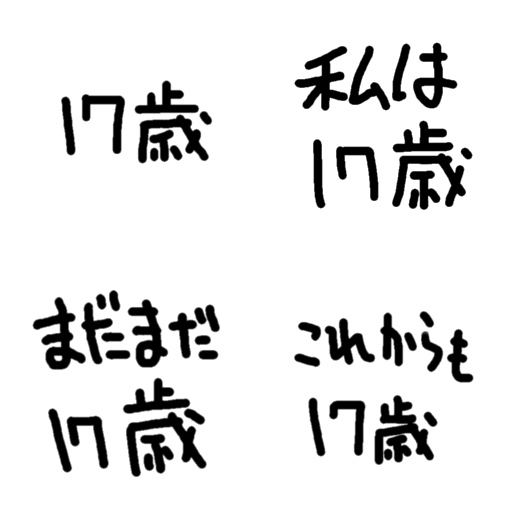 17歳
私は
17歳
まだまだ
17歳
これからも
17歳